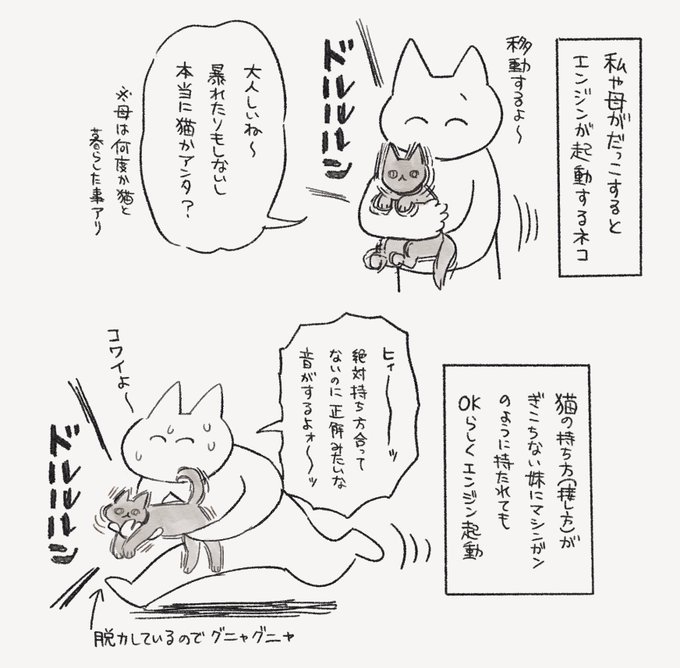 私や母がだっこすると
エンジンが起動するネコ
移動するよ〜
ドルルルン
大人しいね〜
暴れたりもしないし
本当に猫かアンタ？
※母は何度か猫と
暮らした事アリ
猫の持ち方(接し方)が
ぎこちない妹にマシンガン
のように持たれても
OKらしくエンジン起動
ヒィーーーッ
絶対持ち方合って
ないのに正解みたいな
音がするよォ〜〜ッ
コワイよ〜
ドルルルン
脱力しているのでグニャグニャ